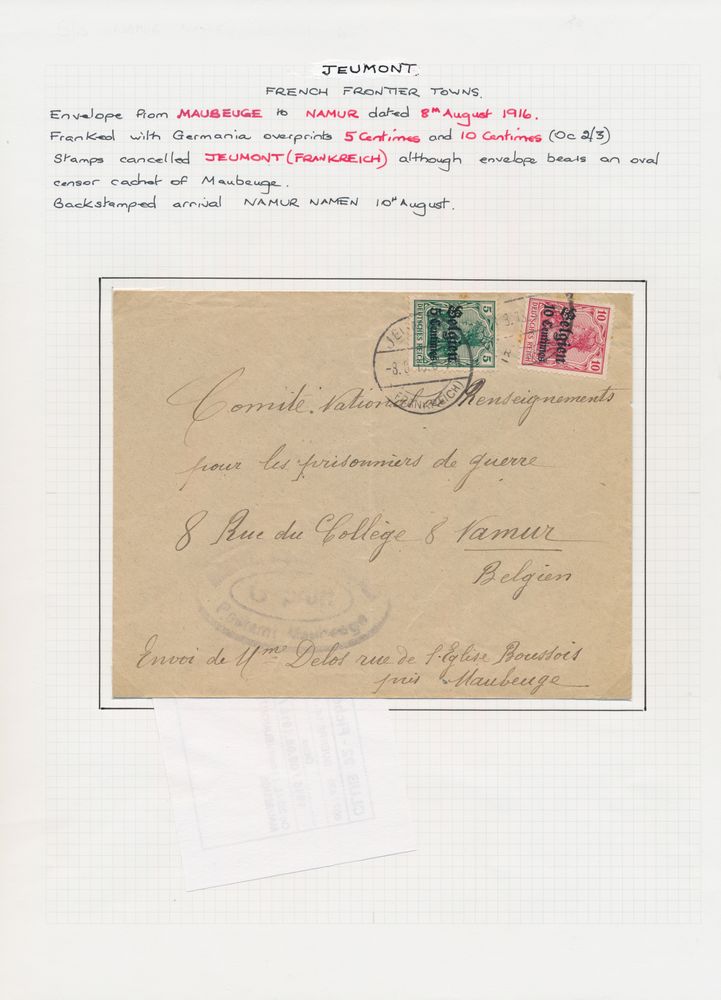 JEUMONT.
FRENCH FRONTIER TOWNS.
Envelope from MAUBEUGE to NAMUR dated 8th August 1916.
Franked with Germania overprints 5 Centimes and 10 Centimes (Oc 2/3)
Stamps cancelled JEUMONT (FRANKREICH) although envelope bears an oval
censor cachet of Maubeuge.
Backstamped arrival NAMUR NAMEN 10th August.
5 DEUTSCHES REICH 5
Belgien
5 Centimes
10 DEUTSCHES REICH 10
Belgien
10 Centimes
(FRANKREICH)
Comité National Renseignements
pour les prisonniers de guerre
8 Rue du Collège 8 Namur
Belgien
Geprüft
Postamt Maubeuge
Envoi de Mme Delos rue de l'Eglise Boussois
près Maubeuge